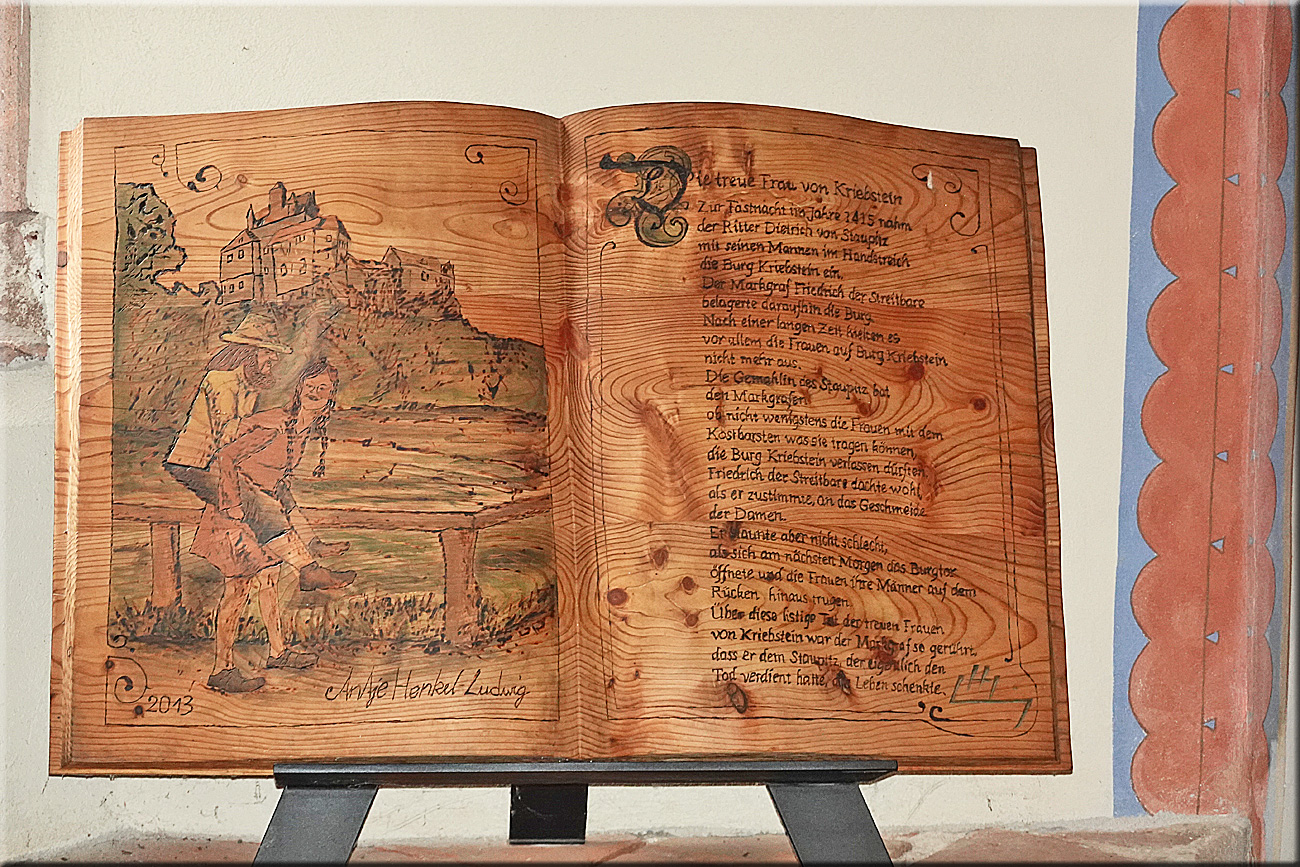 2013
Antje Henkel-Ludwig
Die treue Frau von Kriebstein
Zur Fastnacht im Jahre 1415 nahm
der Ritter Dietrich von Staupitz
mit seinen Mannen im Handstreich
die Burg Kriebstein ein.
Der Markgraf Friedrich der Streitbare
belagerte daraufhin die Burg.
Nach einer langen Zeit hielten es
vor allem die Frauen auf Burg Kriebstein
nicht mehr aus.
Die Gemahlin des Staupitz bat
den Markgrafen
ob nicht wenigstens die Frauen mit dem
Kostbarsten was sie tragen können,
die Burg Kriebstein verlassen dürften.
Friedrich der Streitbare dachte wohl,
als er zustimmte, an das Geschmeide
der Damen.
Er staunte aber nicht schlecht,
als sich am nächsten Morgen das Burgtor
öffnete und die Frauen ihre Männer auf dem
Rücken hinaus trugen.
Über diese listige Tat der treuen Frauen
von Kriebstein war der Markgraf so gerührt,
dass er dem Staupitz, der eigentlich den
Tod verdient hatte, das Leben schenkte.